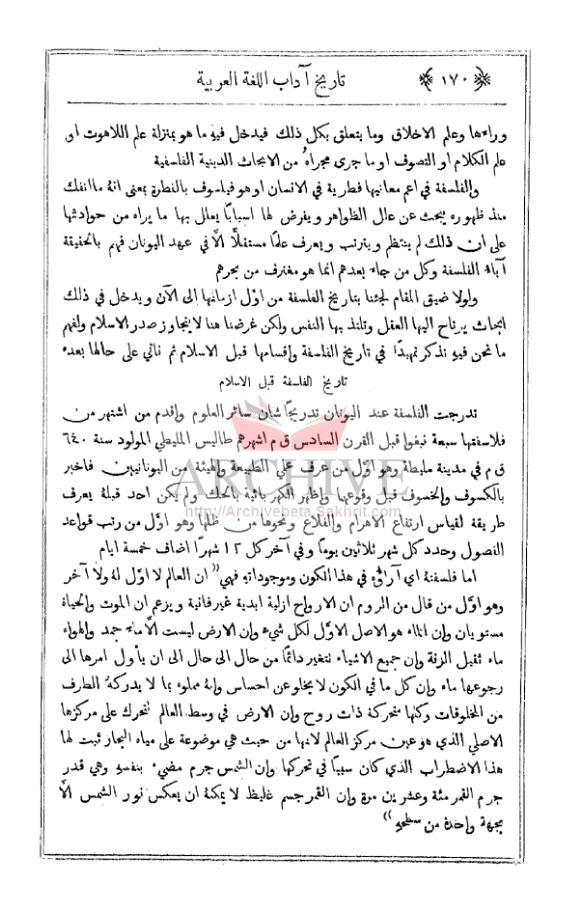 ﴿ ١٧٠ ﴾ تاريخ آداب اللغة العربية
وراءها وعلم الاخلاق وما يتعلق بكل ذلك فيدخل فيهِ ما هو بمنزلة علم اللاهوت او
علم الكلام او التصوف او ما جرى مجراهُ من الابحاث الدينية الفلسفية
والفلسفة في اعم معانيها فطرية في الانسان او هو فيلسوف بالفطرة بمعنى انهُ ما انفك
منذ ظهوره يبحث عن علل الظواهر ويفرض لها اسبابًا يعلل بها ما يراه من حوادثها
على ان ذلك لم ينتظم ويترتب ويعرف علمًا مستقلًّا الَّا في عهد اليونان فهم بالحقيقة
آباء الفلسفة وكل من جاء بعدهم انما هو مغترف من بحرهم
ولولا ضيق المقام لجئنا بتاريخ الفلسفة من اوّل ازمانها الى الآن ويدخل في ذلك
ابحاث يرتاح اليها العقل وتلتذ بها النفس ولكن غرضنا هنا لا يتجاوز صدر الاسلام ولفهم
ما نحن فيهِ نذكر تمهيدًا في تاريخ الفلسفة واقسامها قبل الاسلام ثم نأتي على حالها بعده
تاريخ الفلسفة قبل الاسلام
تدرجت الفلسفة عند اليونان تدريجًا شان سائر العلوم واقدم من اشتهر من
فلاسفتها سبعة نبغوا قبل القرن السادس ق م اشهرهم طاليس المليطي المولود سنة ٦٤٠
ق م في مدينة مليطة وهو اوّل من عرف علمي الطبيعة والهيئة من اليونانيين فاخبر
بالكسوف والخسوف قبل وقوعها واظهر الكهربائية بالحك ولم يكن احد قبلهُ يعرف
طريقة لقياس ارتفاع الاهرام والقلاع ونحوها من ظلها وهو اوّل من رتب قواعد
الفصول وحدد كل شهر ثلاثين يومًا وفي آخر كل ١٢ شهرًا اضاف خمسة ايام
اما فلسفتهُ اي آراؤه في هذا الكون وموجوداتهِ فهي "ان العالم لا اوّل لهُ ولا آخر
وهو اوّل من قال من الروم ان الارواح ازلية ابدية غير فانية ويزعم ان الموت والحياة
مستويان وان الماء هو الاصل الاوّل لكل شيء وان الارض ليست الَّا ماء جمد والهواء
ماء ثقيل الزفة وان جميع الاشياء تتغير دائمًا من حال الى حال الى ان يأول امرها الى
رجوعها ماء وان كل ما في الكون لا يخلو عن احساس وانهُ مملوء بما لا يدركهُ الطرف
من المخلوقات وكلها متحركة ذات روح وان الارض في وسط العالم تتحرك على مركزها
الاصلي الذي هو عين مركز العالم لانها من حيث هي موضوعة على مياه البحار ثبت لها
هذا الاضطراب الذي كان سببًا في تحركها وان الشمس جرم مضيء بنفسهِ وهي قدر
جرم القمر مئة وعشرين مرة وان القمر جسم غليظ لا يمكنهُ ان يعكس نور الشمس الَّا
بجهة واحدة من سطحهِ"
ARCHIVE
http://Archivebeta.Sakhrit.com